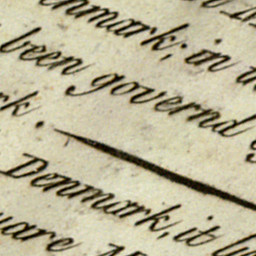 Denmark; in
been governd
rk.
Denmark, it
uare